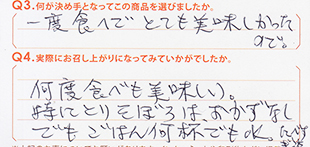 Q3.何が決め手となってこの商品を選びましたか。
一度食べて とても美味しかった
ので。
Q4.実際にお召し上がりになってみていかがでしたか。
何度食べても美味しい。
特にとりそぼろは、おかずなし
でも ごはん何杯でもOK。